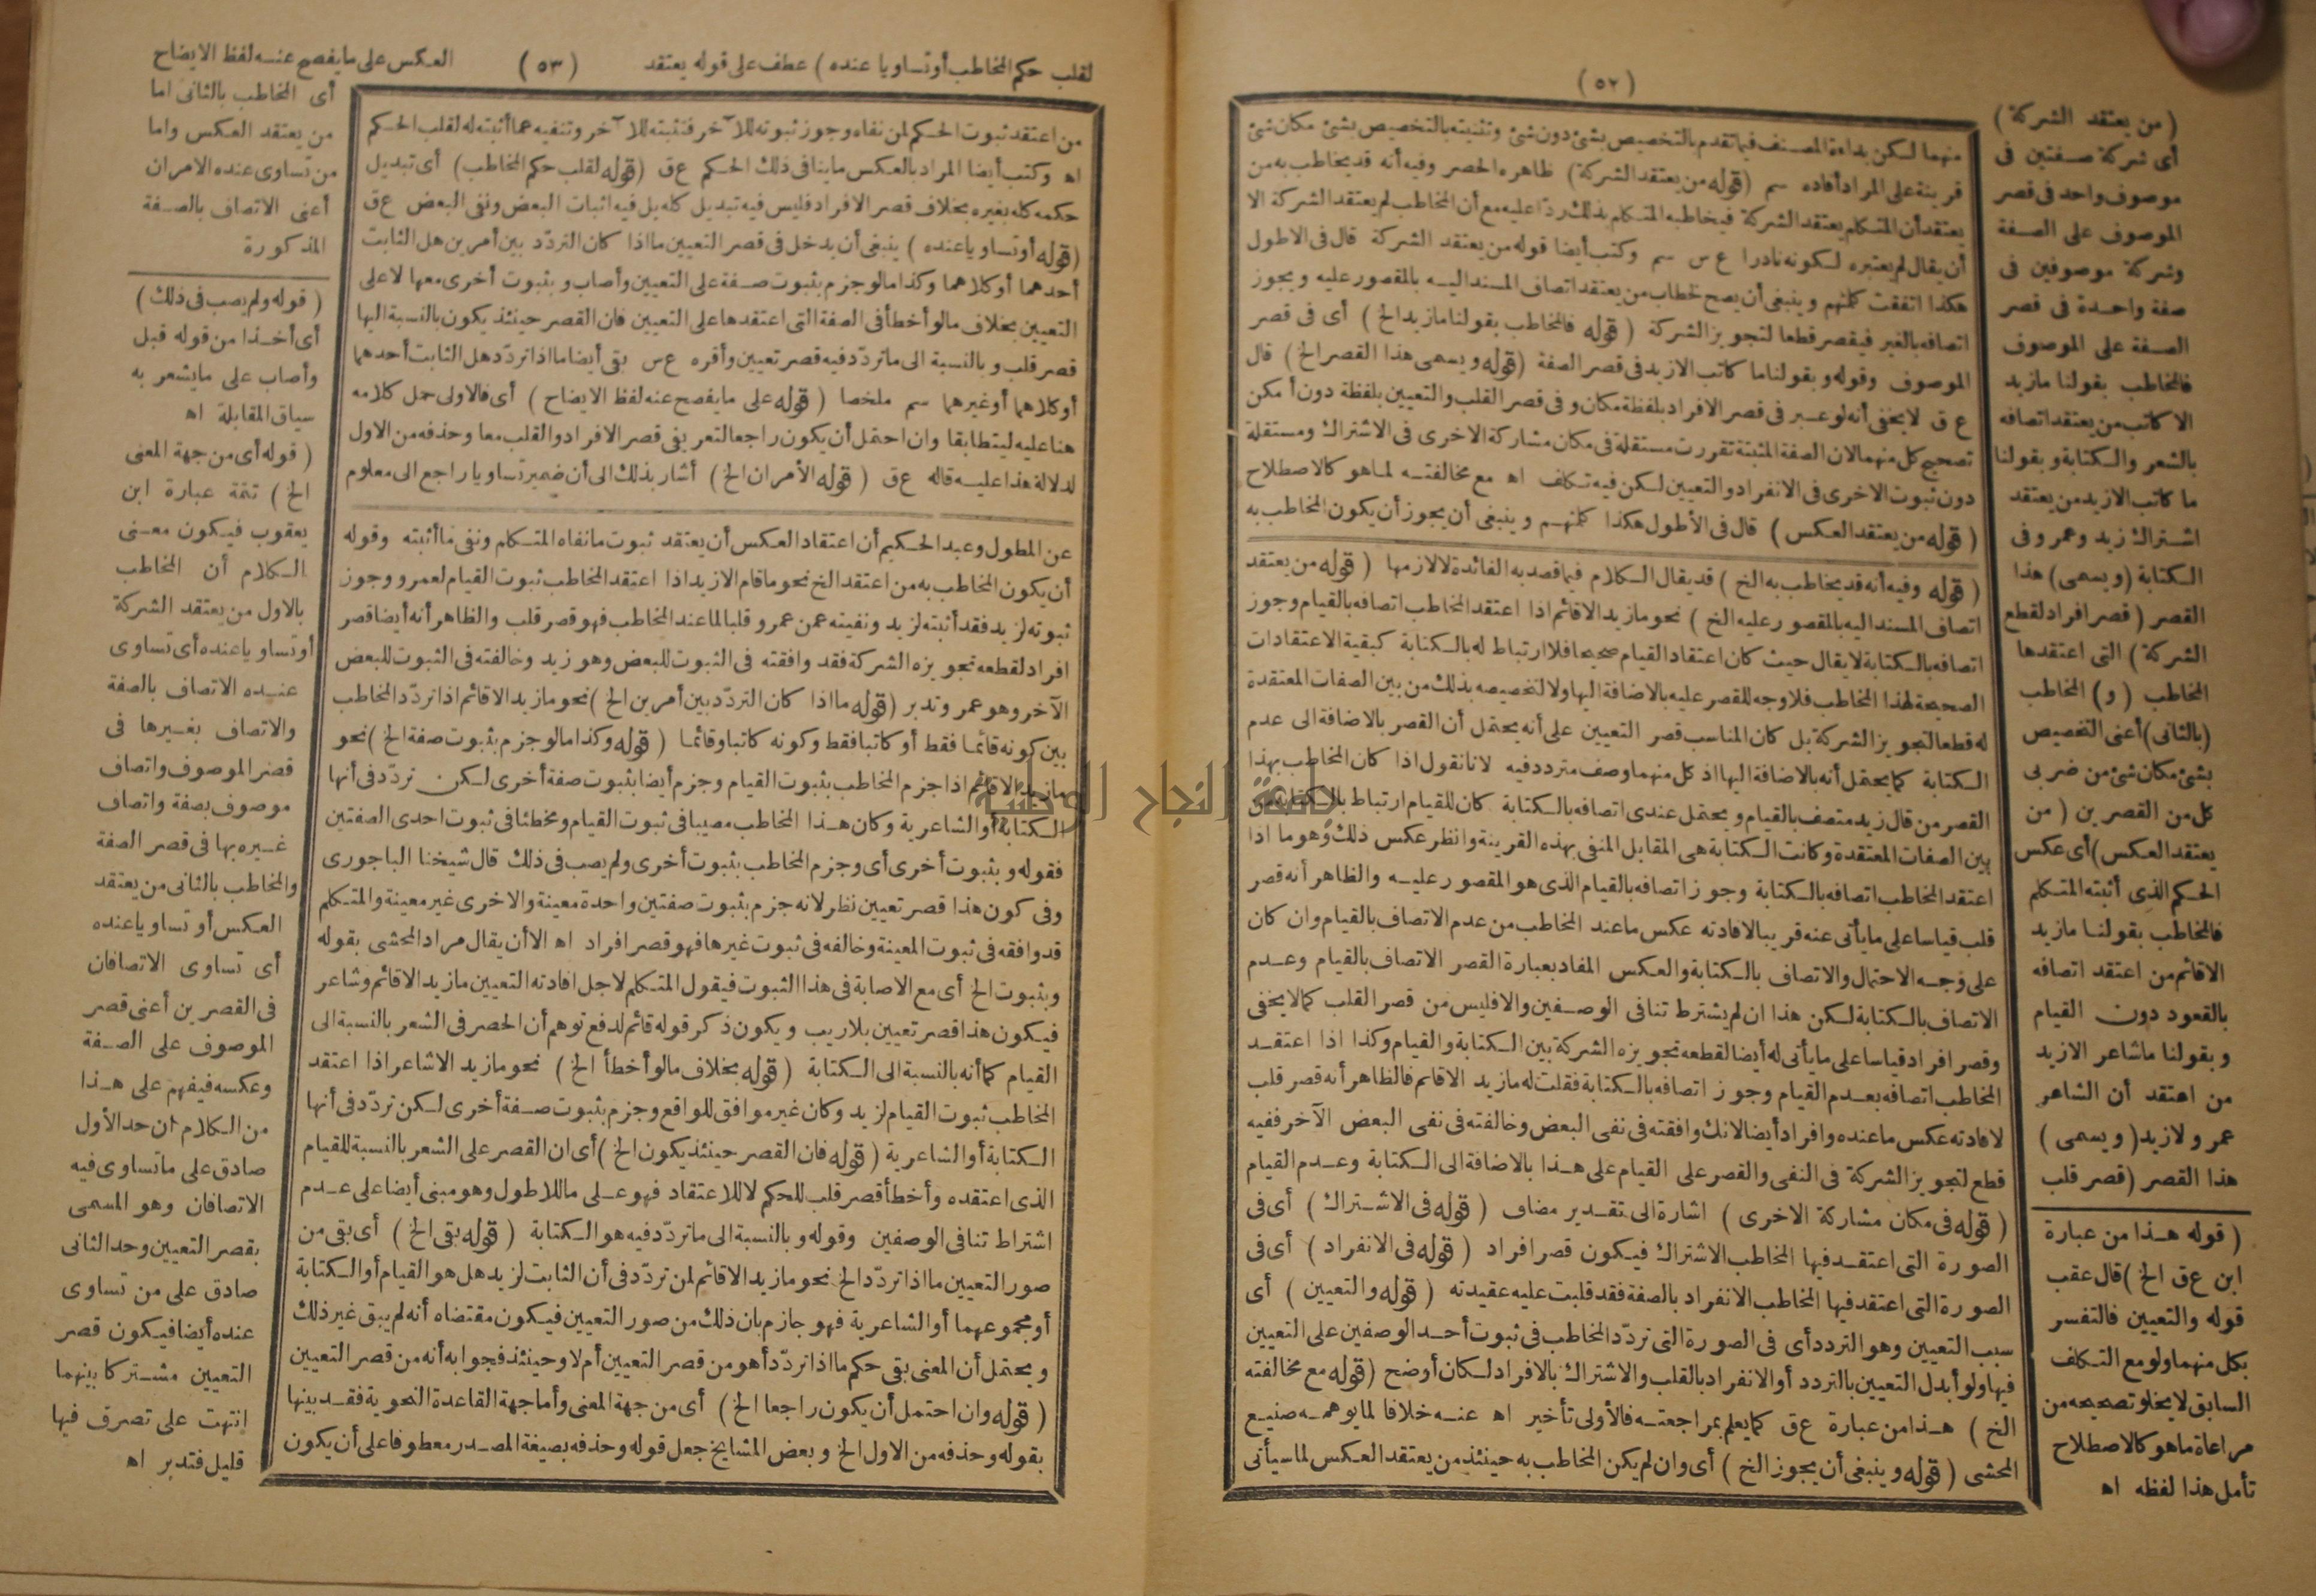 (٥٢)
(من يعتقد الشركة)
أى شركة صفتين فى
موصوف واحد فى قصر
الموصوف على الصفة
وشركة موصوفين فى
صفة واحدة فى قصر
الصفة على الموصوف
فالمخاطب بقولنا مازيد
الا كاتب من يعتقد اتصافه
بالشعر والكتابة وبقولنا
ما كاتب الازيد من يعتقد
اشتراك زيد وعمر وفى
الكتابة (ويسمى) هذا
القصر (قصر افراد لقطع
الشركة) التى اعتقدها
المخاطب (و) المخاطب
(بالثانى) أعنى التخصيص
بشئ مكان شئ من ضربى
كل من القصرين (من
يعتقد العكس) أى عكس
الحكم الذى أثبته المتكلم
فالمخاطب بقولنا مازيد
الاقائم من اعتقد اتصافه
بالقعود دون القيام
وبقولنا ماشاعر الازيد
من اعتقد أن الشاعر
عمر ولازيد (ويسمى)
هذا القصر (قصر قلب
(قوله هذا من عبارة
ابن ع ق الخ) قال عقب
قوله والتعيين فالتفسر
بكل منهما ولو مع التكلف
السابق لا يخلو تصحيحه من
مراعاة ما هو كالاصطلاح
تأمل هذا لفظه اه
منهما لكن بداءة المصنف فيما تقدم بالتخصيص بشئ دون شئ وتثنيته بالتخصيص بشئ مكان شئ
قرينة على المراد أفاده سم (قوله من يعتقد الشركة) ظاهره الحصر وفيه أنه قد يخاطب به من
يعتقد أن المتكلم يعتقد الشركة فيخاطبه المتكلم بذلك ردّا عليه مع أن المخاطب لم يعتقد الشركة الا
أن يقال لم يعتبره لكونه نادرا ع س سم وكتب أيضا قوله من يعتقد الشركة قال فى الاطول
هكذا اتفقت كلمتهم وينبغى أن يصح لخطاب من يعتقد اتصاف المسند اليه بالمقصور عليه ويجوز
اتصافه بالغير فيقصر قطعا لتجويز الشركة (قوله فالمخاطب بقولنا مازيد الخ) أى فى قصر
الموصوف وقوله وبقولنا ما كاتب الازيد فى قصر الصفة (قوله ويسمى هذا القصر الخ) قال
ع ق لا يخفى أنه لو عبر فى قصر الافراد بلفظة مكان وفى قصر القلب والتعيين بلفظة دون أمكن
تصحيح كل منهما لان الصفة المثبتة تقررت مستقلة فى مكان مشاركة الاخرى فى الاشتراك ومستقلة
دون ثبوت الاخرى فى الانفراد والتعيين لكن فيه تكلف اه مع مخالفته لما هو كالاصطلاح
(قوله من يعتقد العكس) قال فى الأطول هكذا كلمتهم وينبغى أن يجوز أن يكون المخاطب به
(قوله وفيه أنه قد يخاطب به الخ) قد يقال الكلام فيما قصد به الفائدة لا لازمها (قوله من يعتقد
اتصاف المسند اليه بالمقصور عليه الخ) نحو مازيد الاقائم اذا اعتقد المخاطب اتصافه بالقيام وجوز
اتصافه بالكتابة لا يقال حيث كان اعتقاد القيام صحيحا فلا ارتباط له بالكتابة كبقية الاعتقادات
الصحيحة لهذا المخاطب فلا وجه للقصر عليه بالاضافة اليها ولا لتخصيصه بذلك من بين الصفات المعتقدة
له قطعا لتجويز الشركة بل كان المناسب قصر التعيين على أنه يحتمل أن القصر بالاضافة الى عدم
الكتابة كما يحتمل أنه بالاضافة اليها اذ كل منهما وصف متردد فيه لانا نقول اذا كان المخاطب بهذا
القصر من قال زيد متصف بالقيام ويحتمل عندى اتصافه بالكتابة كان للقيام ارتباط بالكتابة من
بين الصفات المعتقدة وكانت الكتابة هى المقابل المنفى بهذه القرينة وانظر عكس ذلك وهو ما اذا
اعتقد المخاطب اتصافه بالكتابة وجوز اتصافه بالقيام الذى هو المقصور عليه والظاهر أنه قصر
قلب قياسا على ما يأتى عنه قريبا لافادته عكس ما عند المخاطب من عدم الاتصاف بالقيام وان كان
على وجه الاحتمال والاتصاف بالكتابة والعكس المفاد بعبارة القصر الاتصاف بالقيام وعدم
الاتصاف بالكتابة لكن هذا ان لم يشترط تنافى الوصفين والا فليس من قصر القلب كما لا يخفى
وقصر افراد قياسا على ما يأتى له أيضا لقطعه تجويزه الشركة بين الكتابة والقيام وكذا اذا اعتقد
المخاطب اتصافه بعدم القيام وجوز اتصافه بالكتابة فقلت له مازيد الاقائم فالظاهر أنه قصر قلب
لافادته عكس ما عنده وافراد أيضا لانك وافقته فى نفى البعض وخالفته فى نفى البعض الآخر ففيه
قطع لتجويز الشركة فى النفى والقصر على القيام على هذا بالاضافة الى الكتابة وعدم القيام
(قوله فى مكان مشاركة الاخرى) اشارة الى تقدير مضاف (قوله فى الاشتراك) أى فى
الصورة التى اعتقد فيها المخاطب الاشتراك فيكون قصر افراد (قوله فى الانفراد) أى فى
الصورة التى اعتقد فيها المخاطب الانفراد بالصفة فقد قلبت عليه عقيدته (قوله والتعيين) أى
سبب التعيين وهو التردد أى فى الصورة التى تردّد المخاطب فى ثبوت أحد الوصفين على التعيين
فيها ولو أبدل التعيين بالتردد أو الانفراد بالقلب والاشتراك بالافراد لكان أوضح (قوله مع مخالفته
الخ) هذا من عبارة ع ق كما يعلم بمراجعته فالأولى تأخير اه عنه خلافا لما يوهمه صنيع
المحشى (قوله وينبغى أن يجوز الخ) أى وان لم يكن المخاطب به حينئذ من يعتقد العكس لما سيأتى
لقلب حكم المخاطب أو تساويا عنده) عطف على قوله يعتقد (٥٣) العكس على ما يفصح عنه لفظ الايضاح
أى المخاطب بالثانى اما
من يعتقد العكس واما
من تساوى عنده الامران
أعنى الاتصاف بالصفة
المذكورة
(قوله ولم يصب فى ذلك)
أى أخذا من قوله قبل
وأصاب على ما يشعر به
سياق المقابلة اه
(قوله أى من جهة المعنى
الخ) تتمة عبارة ابن
يعقوب فيكون معنى
الكلام أن المخاطب
بالاول من يعتقد الشركة
أو تساويا عنده أى تساوى
عنده الاتصاف بالصفة
والاتصاف بغيرها فى
قصر الموصوف واتصاف
موصوف بصفة واتصاف
غيره بها فى قصر الصفة
والمخاطب بالثانى من يعتقد
العكس أو تساويا عنده
أى تساوى الاتصافان
فى القصرين أعنى قصر
الموصوف على الصفة
وعكسه فيفهم على هذا
من الكلام أن حد الأول
صادق على ما تساوى فيه
الاتصافان وهو المسمى
بقصر التعيين وحد الثانى
صادق على من تساوى
عنده أيضا فيكون قصر
التعيين مشتركا بينهما
انتهت على تصرف فيها
قليل فتدبر اه
من اعتقد ثبوت الحكم لمن نفاه وجوز ثبوته للآخر فتثبته للآخر وتنفيه عما أثبته له لقلب الحكم
اه وكتب أيضا المراد بالعكس ما ينافى ذلك الحكم ع ق (قوله لقلب حكم المخاطب) أى تبديل
حكمه كله بغيره بخلاف قصر الافراد فليس فيه تبديل كله بل فيه اثبات البعض ونفى البعض ع ق
(قوله أو تساويا عنده) ينبغى أن يدخل فى قصر التعيين ما اذا كان التردّد بين أمرين هل الثابت
أحدهما أو كلاهما وكذا ما لو جزم بثبوت صفة على التعيين وأصاب وبثبوت أخرى معها لا على
التعيين بخلاف ما لو أخطأ فى الصفة التى اعتقدها على التعيين فان القصر حينئذ يكون بالنسبة اليها
قصر قلب وبالنسبة الى ما تردّد فيه قصر تعيين وأقره ع س بقى أيضا ما اذا تردّد هل الثابت أحدهما
أو كلاهما أو غيرهما سم ملخصا (قوله على ما يفصح عنه لفظ الايضاح) أى فالاولى حمل كلامه
هنا عليه ليتطابقا وان احتمل أن يكون راجعا لتعريفى قصر الافراد والقلب معا وحذفه من الاول
لدلالة هذا عليه قاله ع ق (قوله الأمران الخ) أشار بذلك الى أن ضمير تساويا راجع الى معلوم
عن المطول وعبد الحكيم أن اعتقاد العكس أن يعتقد ثبوت ما نفاه المتكلم ونفى ما أثبته وقوله
أن يكون المخاطب به من اعتقد الخ نحو ما قام الازيد اذا اعتقد المخاطب ثبوت القيام لعمر ووجوز
ثبوته لزيد فقد أثبته لزيد ونفيته عن عمر وقلبا لما عند المخاطب فهو قصر قلب والظاهر أنه أيضا قصر
افراد لقطعه تجويزه الشركة فقد وافقته فى الثبوت للبعض وهو زيد وخالفته فى الثبوت للبعض
الآخر وهو عمر وتدبر (قوله ما اذا كان التردّد بين أمرين الخ) نحو مازيد الاقائم اذا تردّد المخاطب
بين كونه قائما فقط أو كاتبا فقط وكونه كاتبا وقائما (قوله وكذا ما لو جزم بثبوت صفة الخ) نحو
مازيد الاقائم اذا جزم المخاطب بثبوت القيام وجزم أيضا بثبوت صفة أخرى لكن تردّد فى أنها
الكتابة أو الشاعرية وكان هذا المخاطب مصيبا فى ثبوت القيام ومخطئا فى ثبوت احدى الصفتين
فقوله وبثبوت أخرى أى وجزم المخاطب بثبوت أخرى ولم يصب فى ذلك قال شيخنا الباجورى
وفى كون هذا قصر تعيين نظر لانه جزم بثبوت صفتين واحدة معينة والاخرى غير معينة والمتكلم
قد وافقه فى ثبوت المعينة وخالفه فى ثبوت غيرها فهو قصر افراد اه الا أن يقال مراد المحشى بقوله
وبثبوت الخ أى مع الاصابة فى هذا الثبوت فيقول المتكلم لاجل افادته التعيين مازيد الاقائم وشاعر
فيكون هذا قصر تعيين بلاريب ويكون ذكر قوله قائم لدفع توهم أن الحصر فى الشعر بالنسبة الى
القيام كما أنه بالنسبة الى الكتابة (قوله بخلاف ما لو أخطأ الخ) نحو مازيد الاشاعر اذا اعتقد
المخاطب ثبوت القيام لزيد وكان غير موافق للواقع وجزم بثبوت صفة أخرى لكن تردّد فى أنها
الكتابة أو الشاعرية (قوله فان القصر حينئذ يكون الخ) أى ان القصر على الشعر بالنسبة للقيام
الذى اعتقده وأخطأ قصر قلب للحكم لا للاعتقاد فهو على ما للاطول وهو مبنى أيضا على عدم
اشتراط تنافى الوصفين وقوله وبالنسبة الى ما تردّد فيه هو الكتابة (قوله بقى الخ) أى بقى من
صور التعيين ما اذا تردّد الخ نحو مازيد الاقائم لمن تردّد فى أن الثابت لزيد هل هو القيام أو الكتابة
أو مجموعهما أو الشاعرية فهو جازم بان ذلك من صور التعيين فيكون مقتضاه أنه لم يبق غير ذلك
ويحتمل أن المعنى بقى حكم ما اذا تردّد أهو من قصر التعيين أم لا وحينئذ فجوابه أنه من قصر التعيين
(قوله وان احتمل أن يكون راجعا الخ) أى من جهة المعنى وأما جهة القاعدة النحوية فقد بينها
بقوله وحذفه من الاول الخ وبعض المشايخ جعل قوله وحذفه بصيغة المصدر معطوفا على أن يكون
جامعة النجاح الوطنية